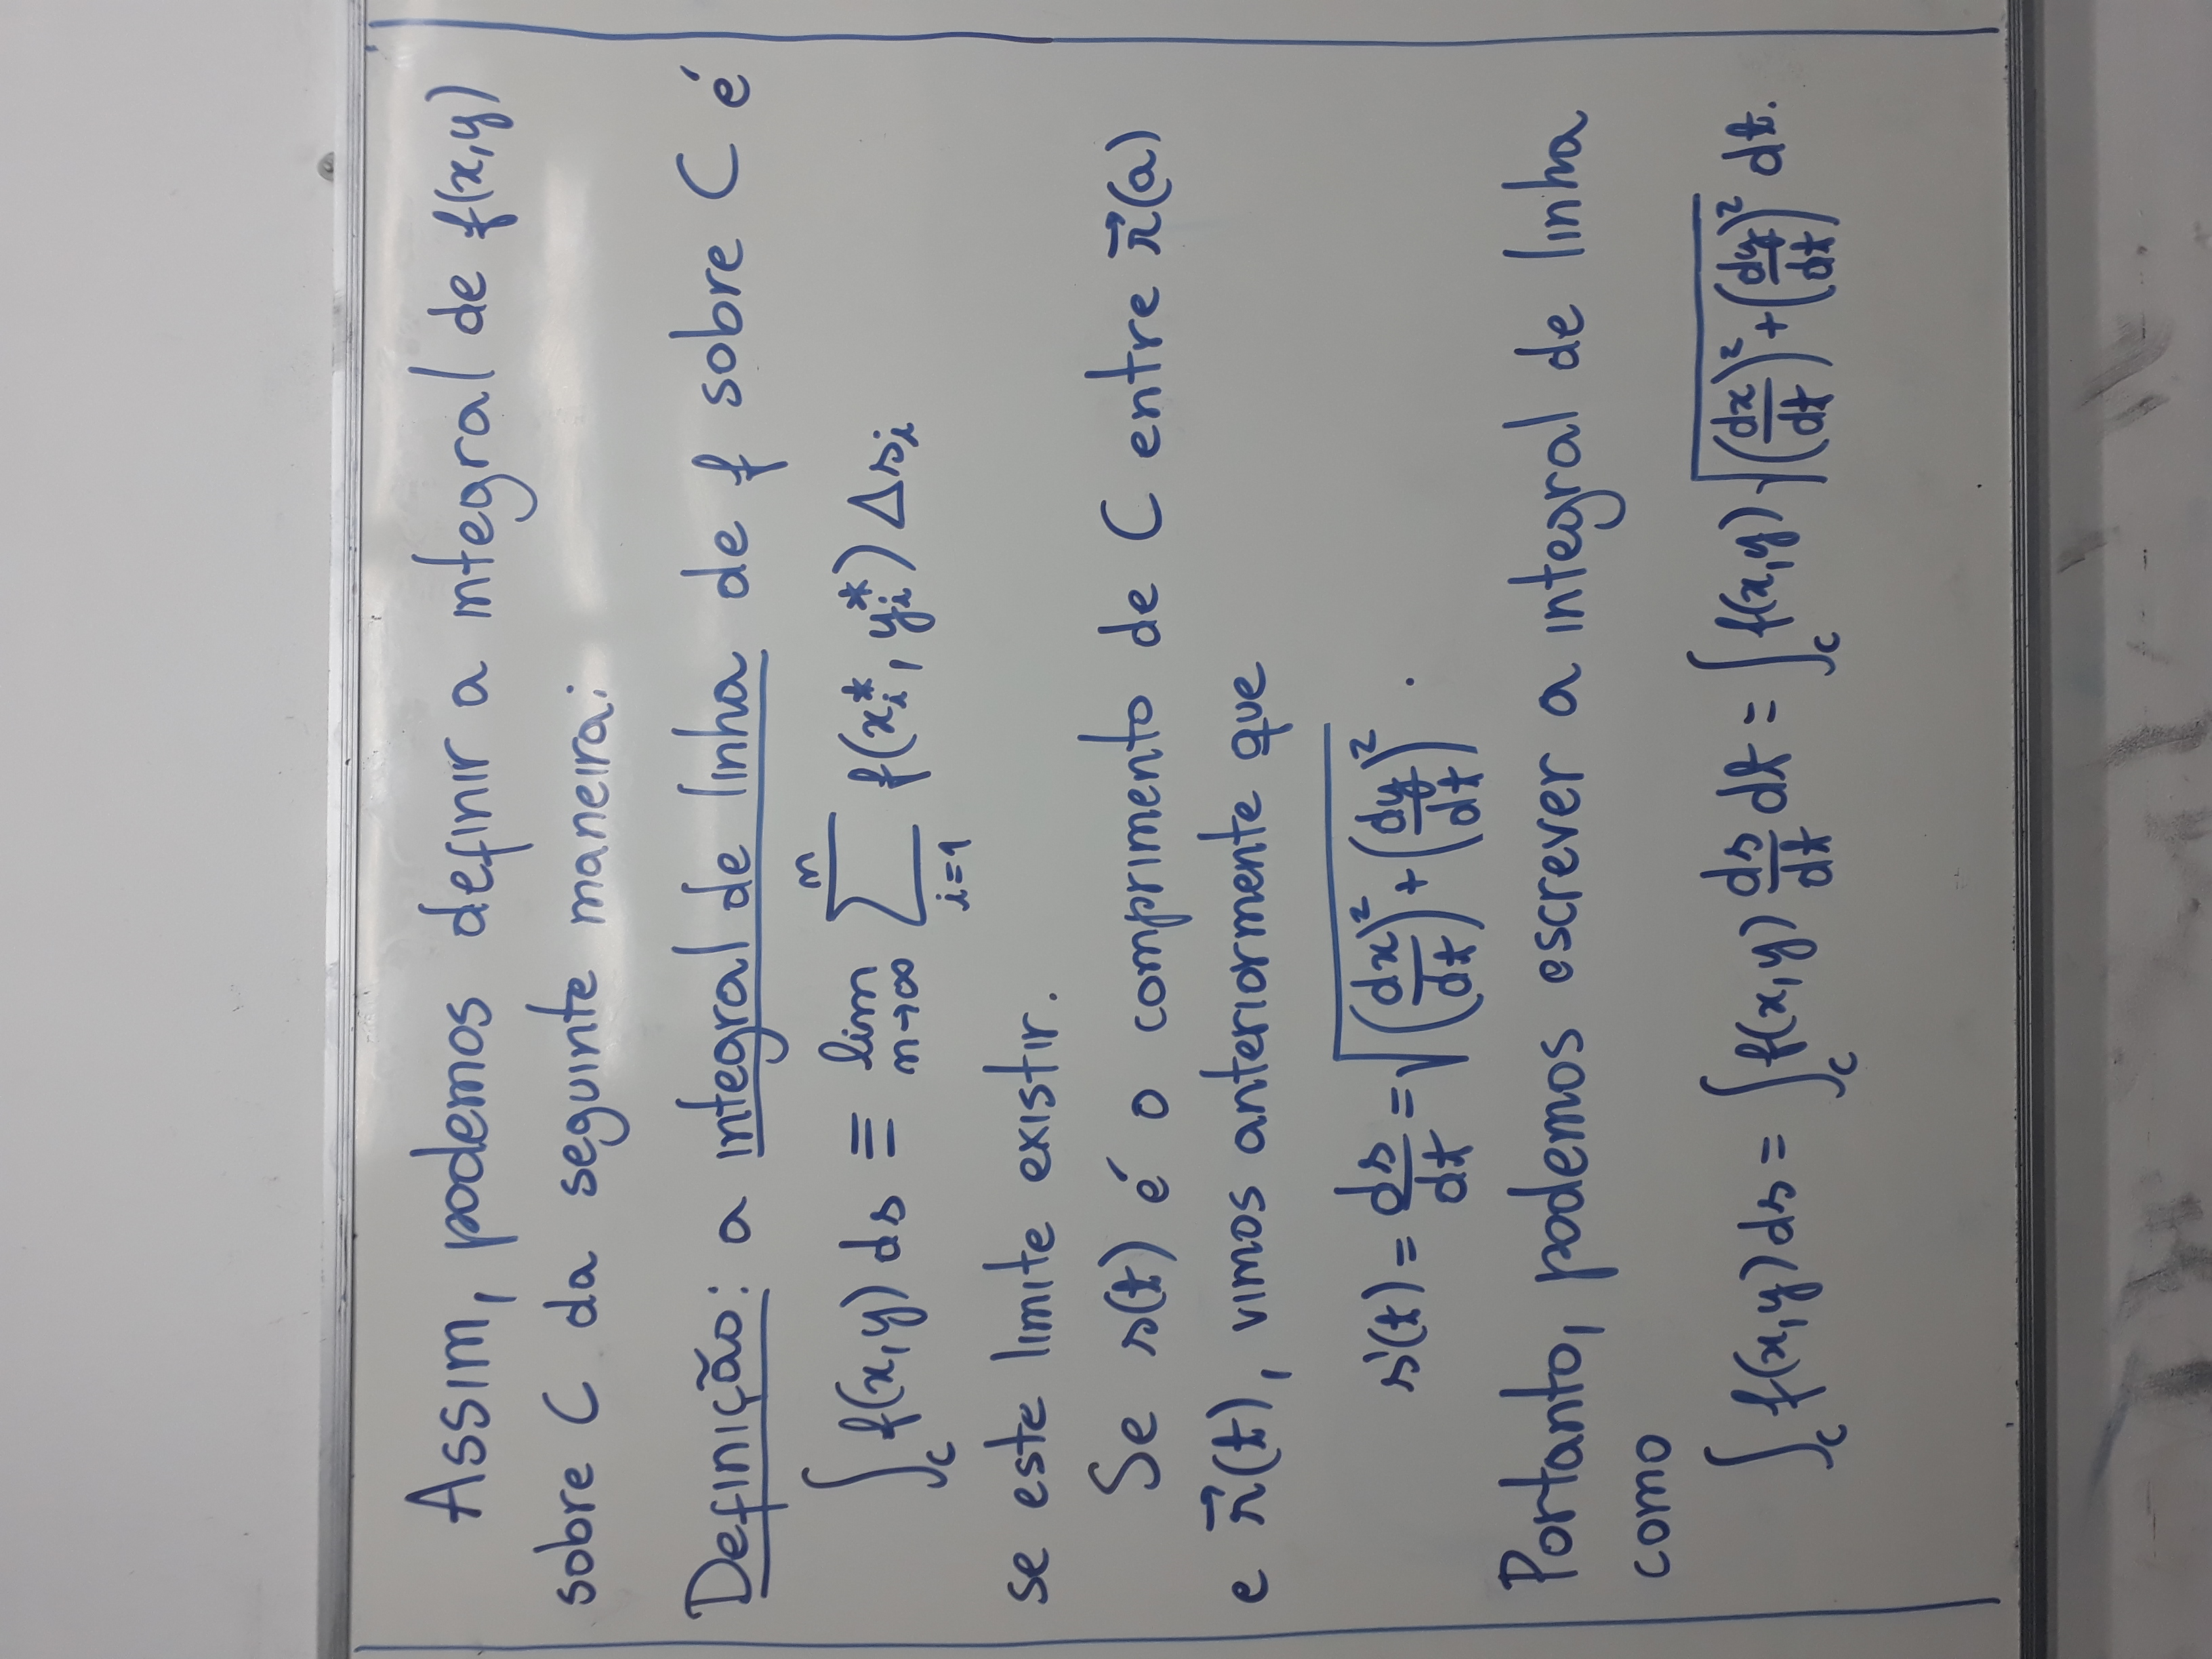 Assim, podemos definir a integral de f(x,y)
sobre C da seguinte maneira:
Definição: a integral de linha de f sobre C é
∫_C f(x,y) ds ≡ lim_{n→∞} ∑_{i=1}^{n} f(x_i^*, y_i^*) Δs_i
se este limite existir.
Se s(t) é o comprimento de C entre r⃗(a)
e r⃗(t), vimos anteriormente que
s'(t) = ds/dt = √((dx/dt)² + (dy/dt)²) .
Portanto, podemos escrever a integral de linha
como
∫_C f(x,y) ds = ∫_C f(x,y) ds/dt dt = ∫_C f(x,y) √((dx/dt)² + (dy/dt)²) dt.